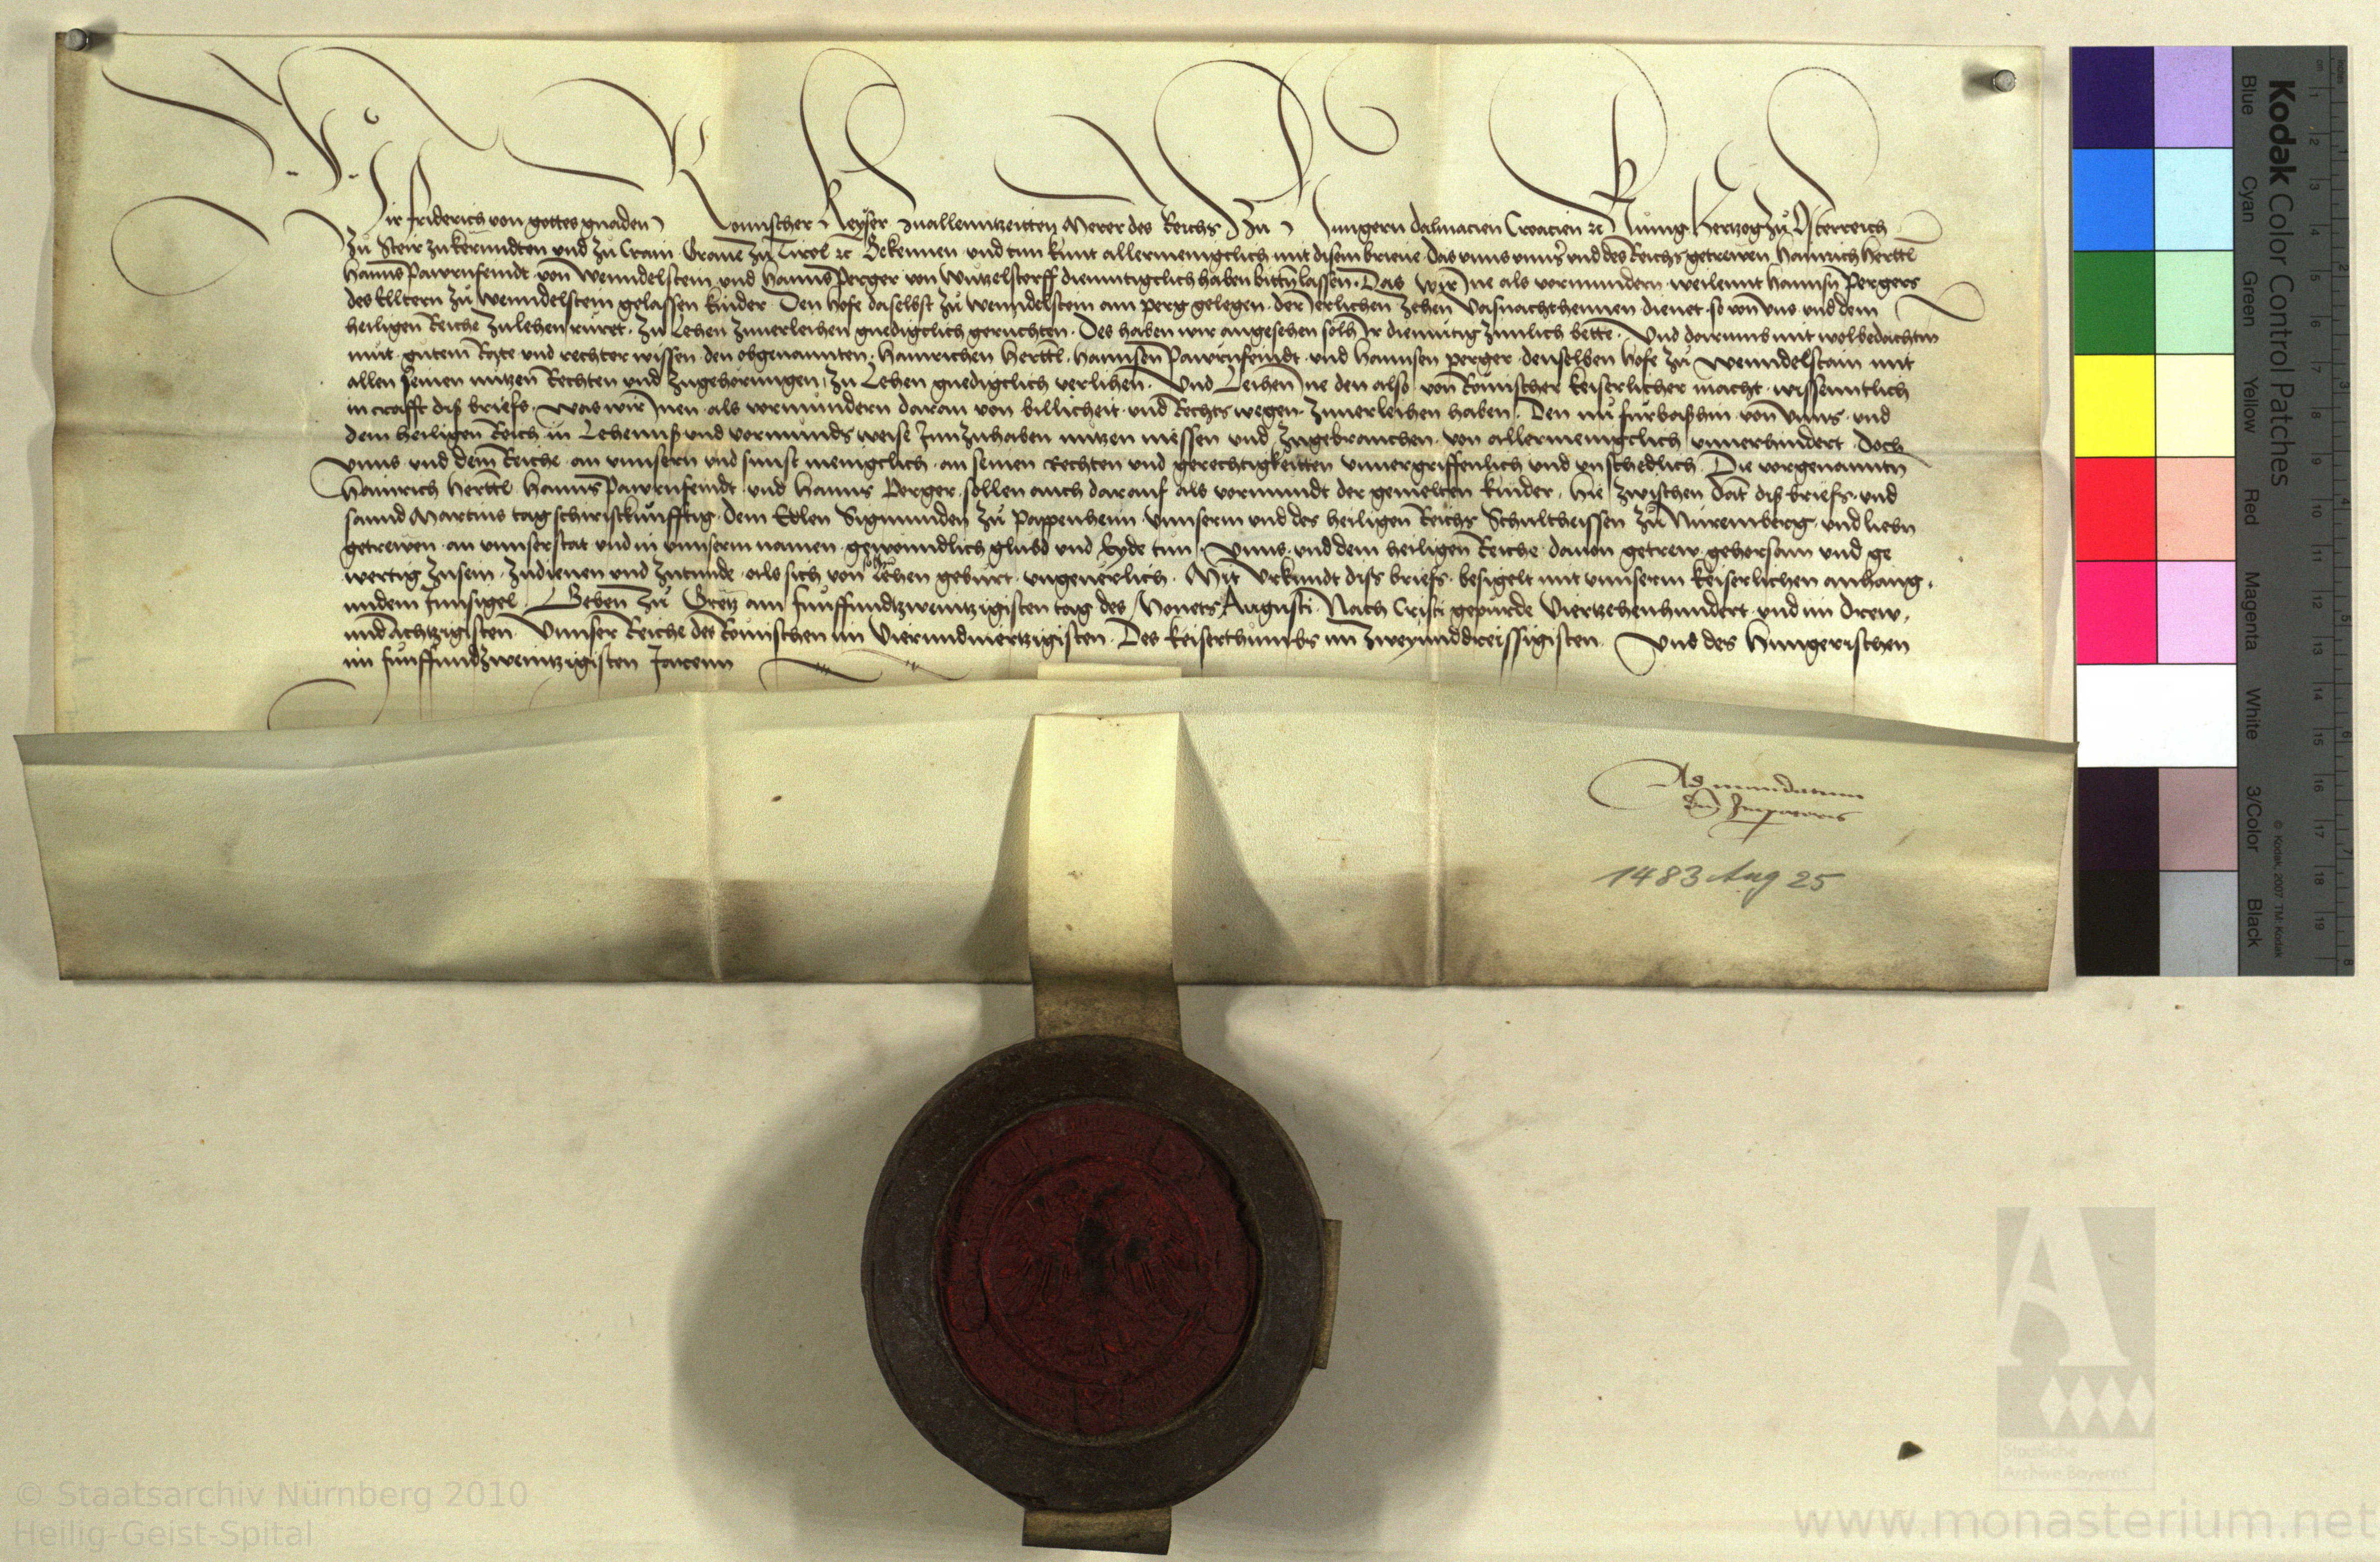 Wir Friderich von gottes gnaden Romischer Keyser zuallenntzeitten Merer des Reichs zu Hungern Dalmacien Croacien ꝛc Kunig Hertzog zů Osterreich
zů Steir zu Kerundten und zů Crain Graue zu Tirol ꝛc Bekennen und tun kunt allermenigclich mit disem brieue das unns unns͛ und des Reichs getrewen Hainrich Herttl
Hanns Pawrnfeindt von Wenndelstein und Hanns Perger von Wutzelstorff diemutigclich haben bitten lassen. Das wir Ine als vormundern weilennt Hannsn Pergers
des Elltern zů Wenndelstein gelassen kinder Den hofe daselbst zů Wenndelstein am perg gelegen. der Jerlichen zehen Vasnachthennen dienet. so von uns und dem
heiligen Reiche zulehen rüret. zu Lehen zuuerleihen gnedigclich geruchten. Des haben wir angesehen solh Ir diemutig zimlich bette. Und darumb mit wolbedachtm
mut. gutem Rate und rechter wissen. den obgenannten. Hainrichen Herttl. Hannsen Pawrnfeindt. und Hannsen perger. denselben hofe zů Wenndelstain mit
allen seinen nutzen Rechten und zugehorungen. zu Lehen gnedigclich verlihen. Und Leihen Ine den also von Romischer keiserlicher macht. wissenntlich
in crafft diß briefs. was wir Inen als vormundern daran von billicheit. und Rechts wegen. zuuerleihen haben. Den nu fürbaßhin. von Unns. und
dem heiligen Reich in Lehennß und vormunds weise Innzuhaben nutzen niessen und zugebrauchen. von allermenigclich unuerhindert. doch
unns. und dem Reiche. an unnsern und sunst menigclich. an seinen Rechten und gerechtigkeitten unuergriffenlich und unschedlich. Die vorgenanntn
Hainrich Herttl Hanns Pawrnfeindt. und Hanns Perger. sollen auch darauf als vormundt der gemelten kinder. hie zwischen dat diß briefs. und
sannd Martins tag schiristkünfftig. dem Edlen Sigmunden zů Pappenheim. Unnserm und des heiligen Reichs Schultheissen zů Nuremberg. und liebn
getrewen. an unnser stat und in unnserm namen. gewonndlich glubd und Eyde tun. Unns. und dem heiligen Reiche. dauon getrew. gehorsam und ge
wertig zusein. zudienen und zutunde. als sich von solhen Lehen gebürt. ungeuerlich. Mit Urkundt diss briefs. besigelt mit unnserm keiserlichen anhang.
undem Innsigel. Geben zů Gretz am funffundtzweintzigisten tag des Monets Augusti. Nach Cristi gepurde Viertzehenhundert. und im drew.
undachtzigisten. Unnser Reiche des Romischen im Vierundviertzigisten. Des keiserthumbs im zweyunddreissigisten. Und des Hungerischen
im fünffundzweintzigisten Jarenn
Ad mandatum
dni Imperatoris
1483 Aug 25
Kodak Color Control Patches
Blue Cyan Green Yellow Red Magenta White 3/Color Black
© Kodak, 2007 TM: Kodak
© Staatsarchiv Nürnberg 2010
Heilig-Geist-Spital
Staatliche
Archive Bayerns
www.monasterium.net